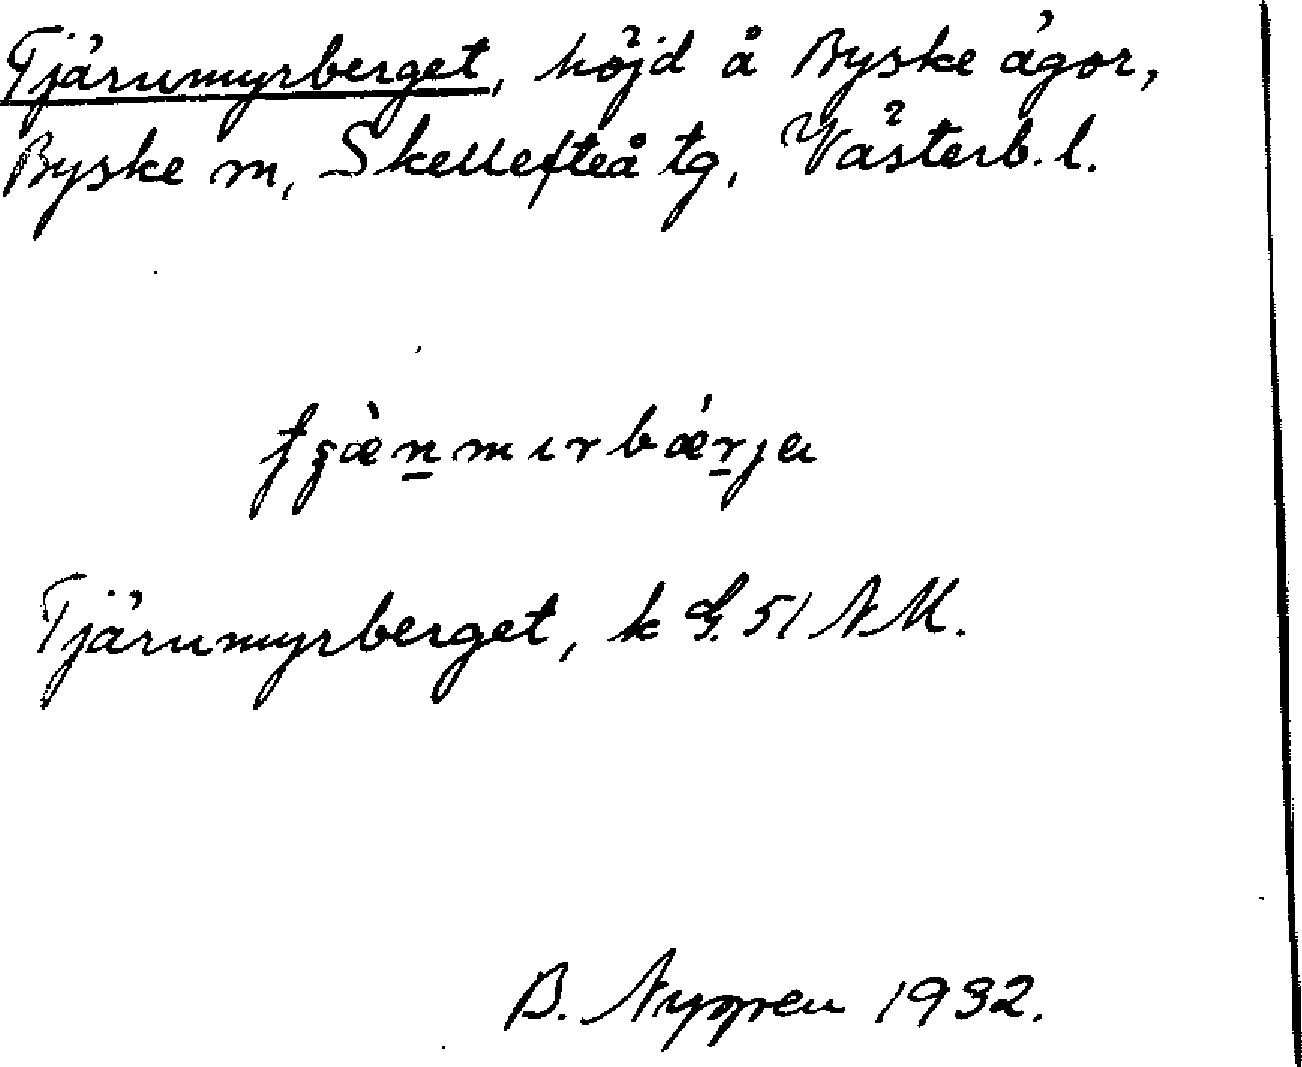 Tjärumyrberget, höjd å Byske ägor,
Byske sn, Skellefteå tg, Västerb. l.
Tjärumyrberget, k G. 51 N.M.
B. Nygren 1932.